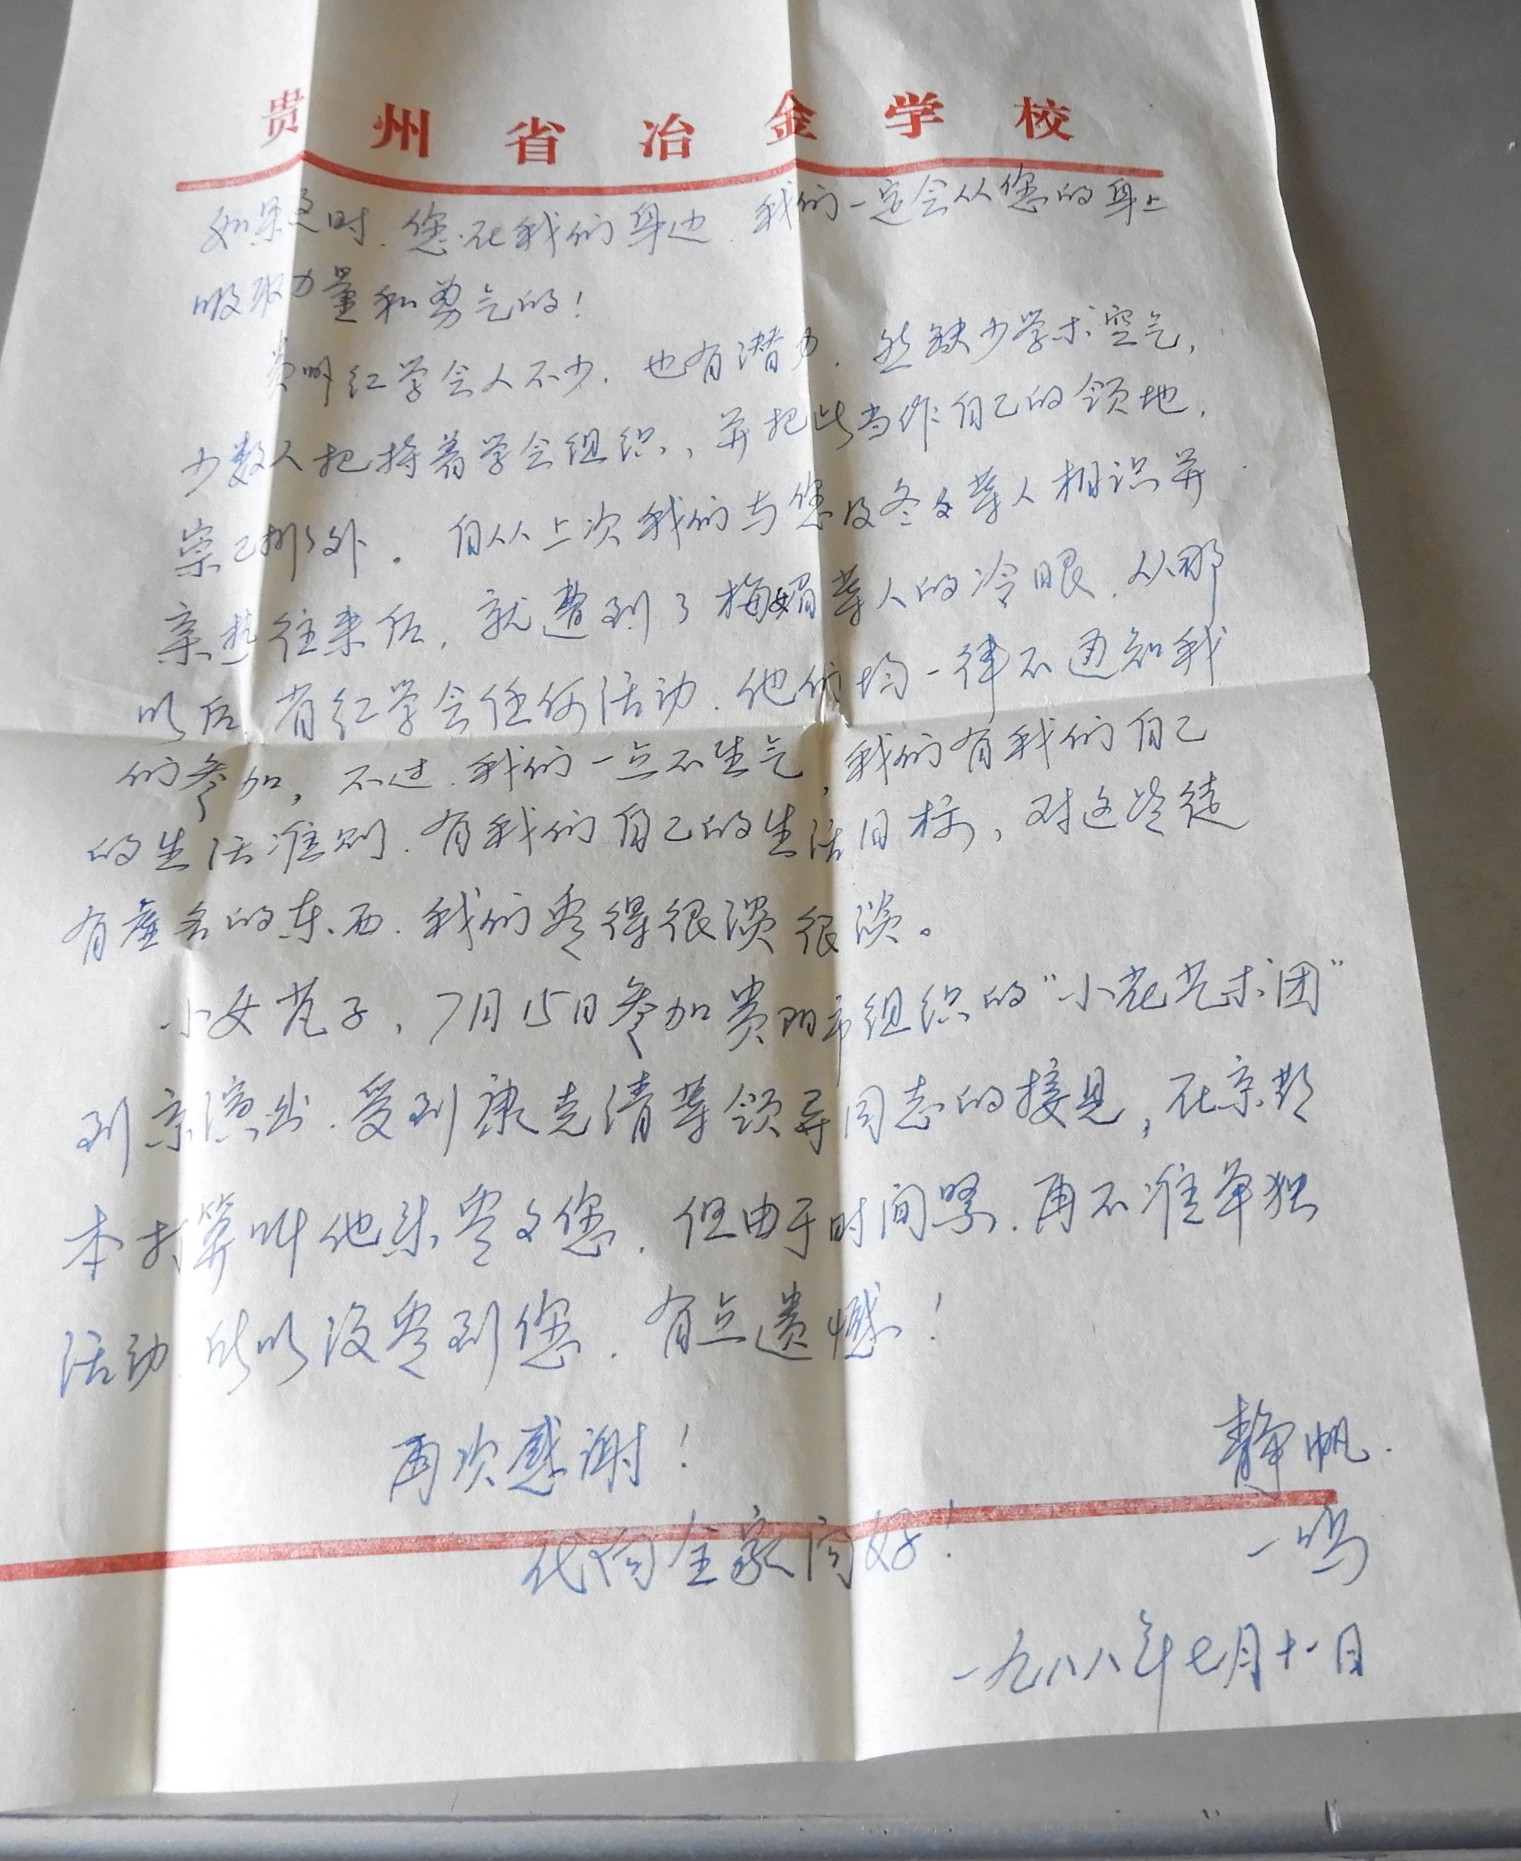 贵州省冶金学校
如果这时.您在我们身边.我们一定会从您的身上
吸取力量和勇气的!
贵州红学会人不少.也有潜力.然缺少学术空气,
少数人把持着学会组织,并把此当作自己的领地,
崇己排外。自从上次我们与您及冬文等人相识并
亲热往来后,就遭到了梅媚等人的冷眼.从那
以后,有红学会任何活动.他们均一律不通知我
们参加,不过.我们一点不生气,我们有我们自己
的生活准则.有我们自己的生活目标,对这些徒
有虚名的东西.我们看得很淡很淡。
小女芃子,7月15日参加贵阳市组织的“小花艺术团”
到京演出.受到康克清等领导同志的接见,在京期
本打算叫他来看文您.但由于时间紧.再不准单独
活动所以没看到您.有点遗憾!
再次感谢!
静帆.
代问全家问好!
一鸣
一九八八年七月十一日